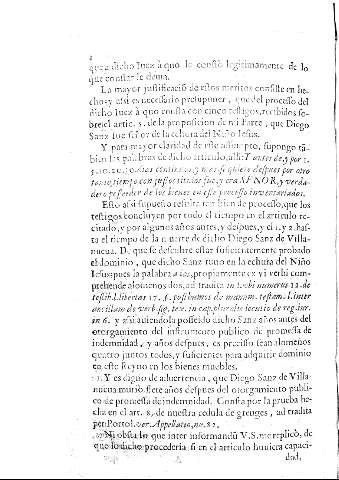 que a dicho Iuez à quo le constò legitimamente de lo
que constar le deuia.
La mayor justificaciõ de estos meritos consiste en he-
cho, y assi es necessario presuponer, que del processo del
dicho Iuez à quo consta con cinco testigos, recibidos so-
bre el artic. 5. de la proposicion de mi Parte, que Diego
Sanz fue señor de la echura del Niño Iesus.
Y para mayor claridad de este assumpto, supongo tã-
bien las palabras de dicho articulo, assi: Y antes de, y por 1.
5. 10. 20. 30. años continuos, y mas si quiere despues por otro
tanto, tiempo con justos titulos fue, y era SEÑOR, y verda-
dero posseedor de los bienes en este processo inventariados.
Esto assi supuesto resulta tan bien de processo, que los
testigos concluyen por todo el tiempo en el articulo re-
citado, y por algunos años antes, y despues, y el 1. y 2. has-
ta el tiempo de la muerte de dicho Diego Sanz de Villa-
nueua. De que se descubre estar suficientemente probado
el dominio, que dicho Sanz tuuo en la echura del Niño
Iesus pues la palabra años, propiamente ex vi verbi com-
prehende alomenos dos, ad tradita in
ancillam de verb. sig.
in 6. y assi auiendola posseìdo dicho Sanz años antes del
otorgamiento del instrumento publico de promessa de
indemnidad, y años despues, es preciso sean alomenos
quatro juntos todos, y suficientes para adquirir dominio
en este Reyno en los bienes muebles.
Y es digno de aduertencia, que Diego Sanz de Villa-
nueua murió siete años despues del otorgamiento publi-
co de promessa de indemnidad. Consta por la prueba he-
cha en el art. 8. de nuestra cedula de greuges, ad tradita
per Portol. ver. Appellatio, nu. 82.
Ni obsta lo que inter informandũ V.S. me replicò, de
que lo dicho procederia si en el articulo huuiera capaci-
dad,